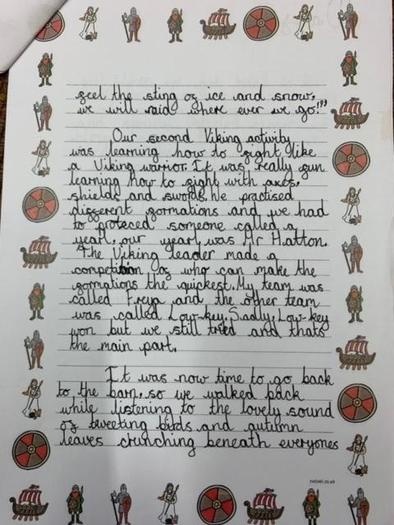 feel the sting of ice and snow,
we will raid where ever we go!"
Our second Viking activity
was learning how to fight like
a Viking warrior. It was really fun
learning how to fight with axes,
shields and swords. We practised
different formations and we had
to proteced someone called a
yearl, our yearl was Mr Hatton.
The Viking leader made a
competition of who can make the
formations the quickest. My team was
called Freya and the other team
was called Low-key. Sadly, Low-key
won but we still tried and thats
the main part.
It was now time to go back
to the barn, so we walked back
while listening to the lovely sound
of tweeting birds and autumn
leaves crunching beneath everyones